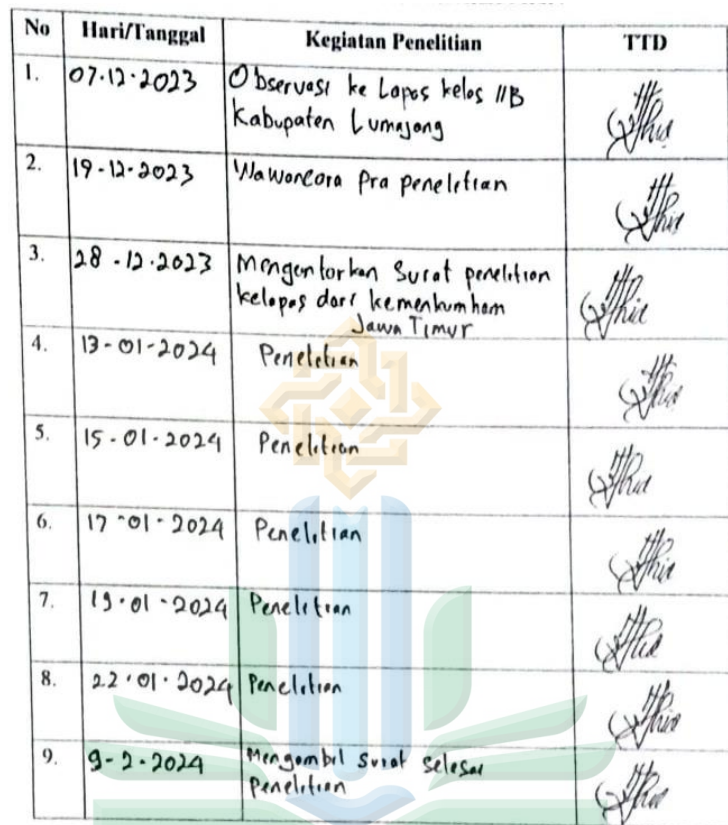 No Hari/Tanggal Kegiatan Penelitian TTD
1. 07-12-2023 Observasi ke Lapas kelas IIB
Kabupaten Lumajang
2. 19-12-2023 Wawancara Pra penelitian
3. 28-12-2023 Mengantarkan Surat penelitian
kelapas dari kemenkumham
Jawa Timur
4. 13-01-2024 Penelitian
5. 15-01-2024 Penelitian
6. 17-01-2024 Penelitian
7. 19-01-2024 Penelitian
8. 22-01-2024 Penelitian
9. 9-2-2024 Mengambil surat selesai
Penelitian